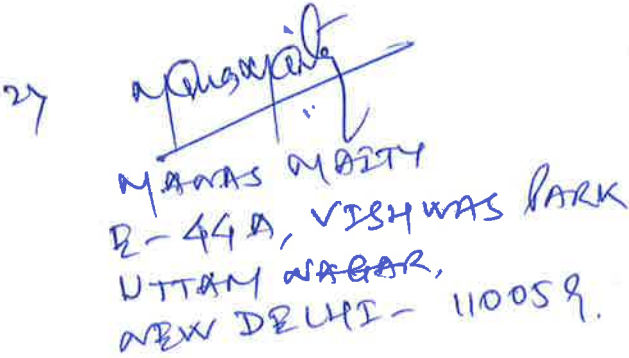 2)
Manas Maity
MANAS MAITY
E-44A, VISHWAS PARK
UTTAM NAGAR,
NEW DELHI - 110059.